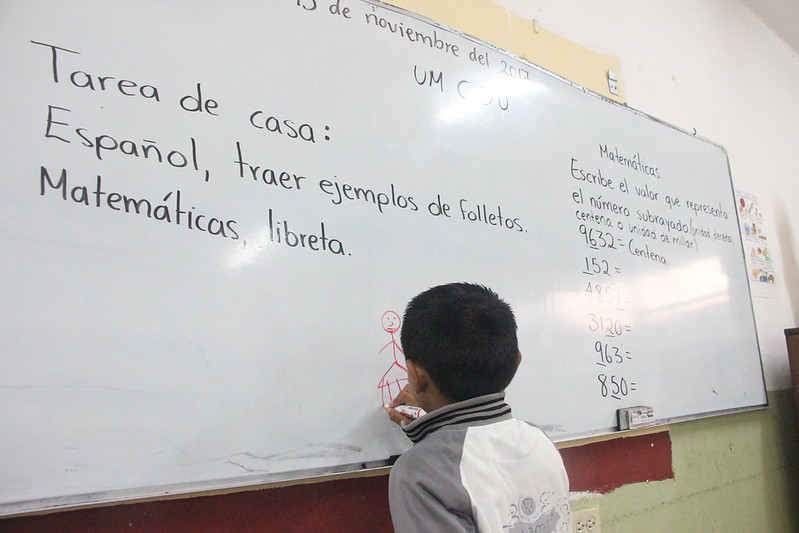 de noviembre del 2017
UM C D U
Tarea de casa:
Español, traer ejemplos de folletos.
Matemáticas, libreta.
Matemáticas
Escribe el valor que representa
el número subrayado (unidad, decena,
centena o unidad de millar)
9632 = Centena
152 =
4857 =
3120 =
963 =
850 =